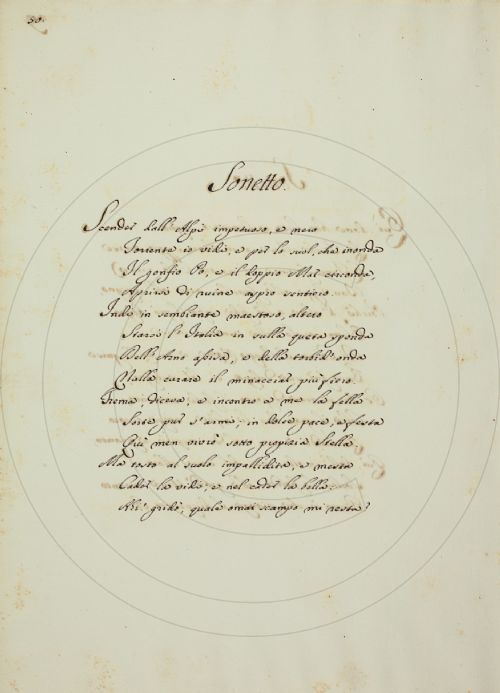 30.
Sonetto.
Scender dall' Alpi impetuoso, e nero
Torrente io vidi, e per lo suol, che inonda
Il gonfio Po, e il doppio Mar circonda,
Aprirsi di ruine aspro sentiero.
Indi in sembiante maestoso, altero
Starsi l' Italia in sulla queta sponda
Dell' Arno assisa, e della torbid' onda
Nulla curare il minacciar più fiero.
Frema, dicea, e incontro a me la fella
Sorte pur s' armi, in dolce pace, e festa
Qui men vivrò sotto propizia Stella
Ma tosto al suolo impallidita, e mesta
Cader la vidi, e nel cader la bella:
Ahi! gridò, quale omai scampo mi resta?